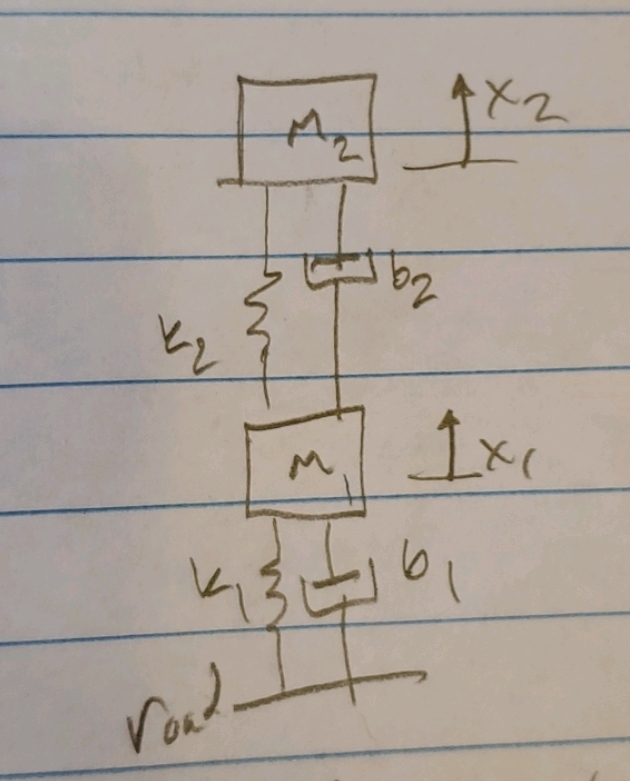 M2
x2
b2
k2
M1
x1
k1
b1
road